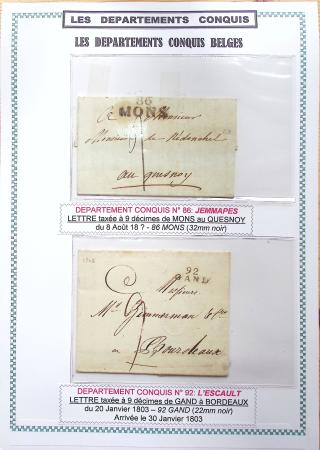 LES DEPARTEMENTS CONQUIS
LES DEPARTEMENTS CONQUIS BELGES
86
MONS
A Monsieur
Monsieur de
au quesnoy
DEPARTEMENT CONQUIS N° 86: JEMMAPES
LETTRE taxée à 9 décimes de MONS au QUESNOY
du 8 Août 18 ? - 86 MONS (32mm noir)
92
GAND
Messieurs
Mrs Zimmerman
a Bourdeaux
DEPARTEMENT CONQUIS N° 92: L'ESCAULT
LETTRE taxée à 9 décimes de GAND à BORDEAUX
du 20 Janvier 1803 – 92 GAND (22mm noir)
Arrivée le 30 Janvier 1803